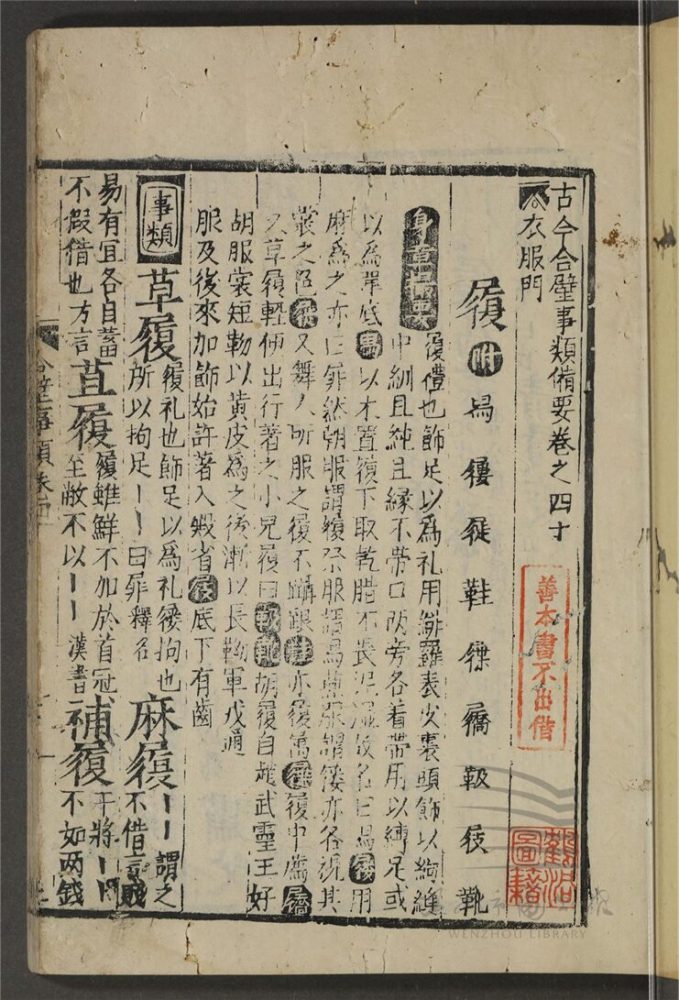 古今合璧事類備要卷之四十
衣服門
履 附 舄 屨 屣 鞋 屧 屩 靸 屐 靴
履禮也飾足以為礼用緋羅表皮裏頭飾以絇繶
中紃且純且縁不帯口両旁各着帯用以縛足或
以為單底 舄 以木置履下取乾腊不畏泥濕故名曰舄 用
麻為之亦曰扉然朝服謂履祭服謂舄 謂屨亦各視其
又舞人所服之履不躡跟 亦履 履中薦 屩
又草履軽便出行著之小兒履曰 靸 靴 胡履自趙武靈王好
胡服裳短勒以黄皮為之後漸以長靿軍戎通
服及後來加飾始許著入殿省 屐 底下有齒
事類
草履 履礼也飾足以為礼屨拘也
所以拘足丨丨曰扉釋名
麻履 丨丨謂之
不借言賤
易有宜各自蓄
不假借也方言
苴履 履雖鮮不加於首冠
至敝不以丨丨漢書
補履 干將丨
不如両錢
合璧事類卷
善本書不出借
圖籍
WENZHOU LIBRARY